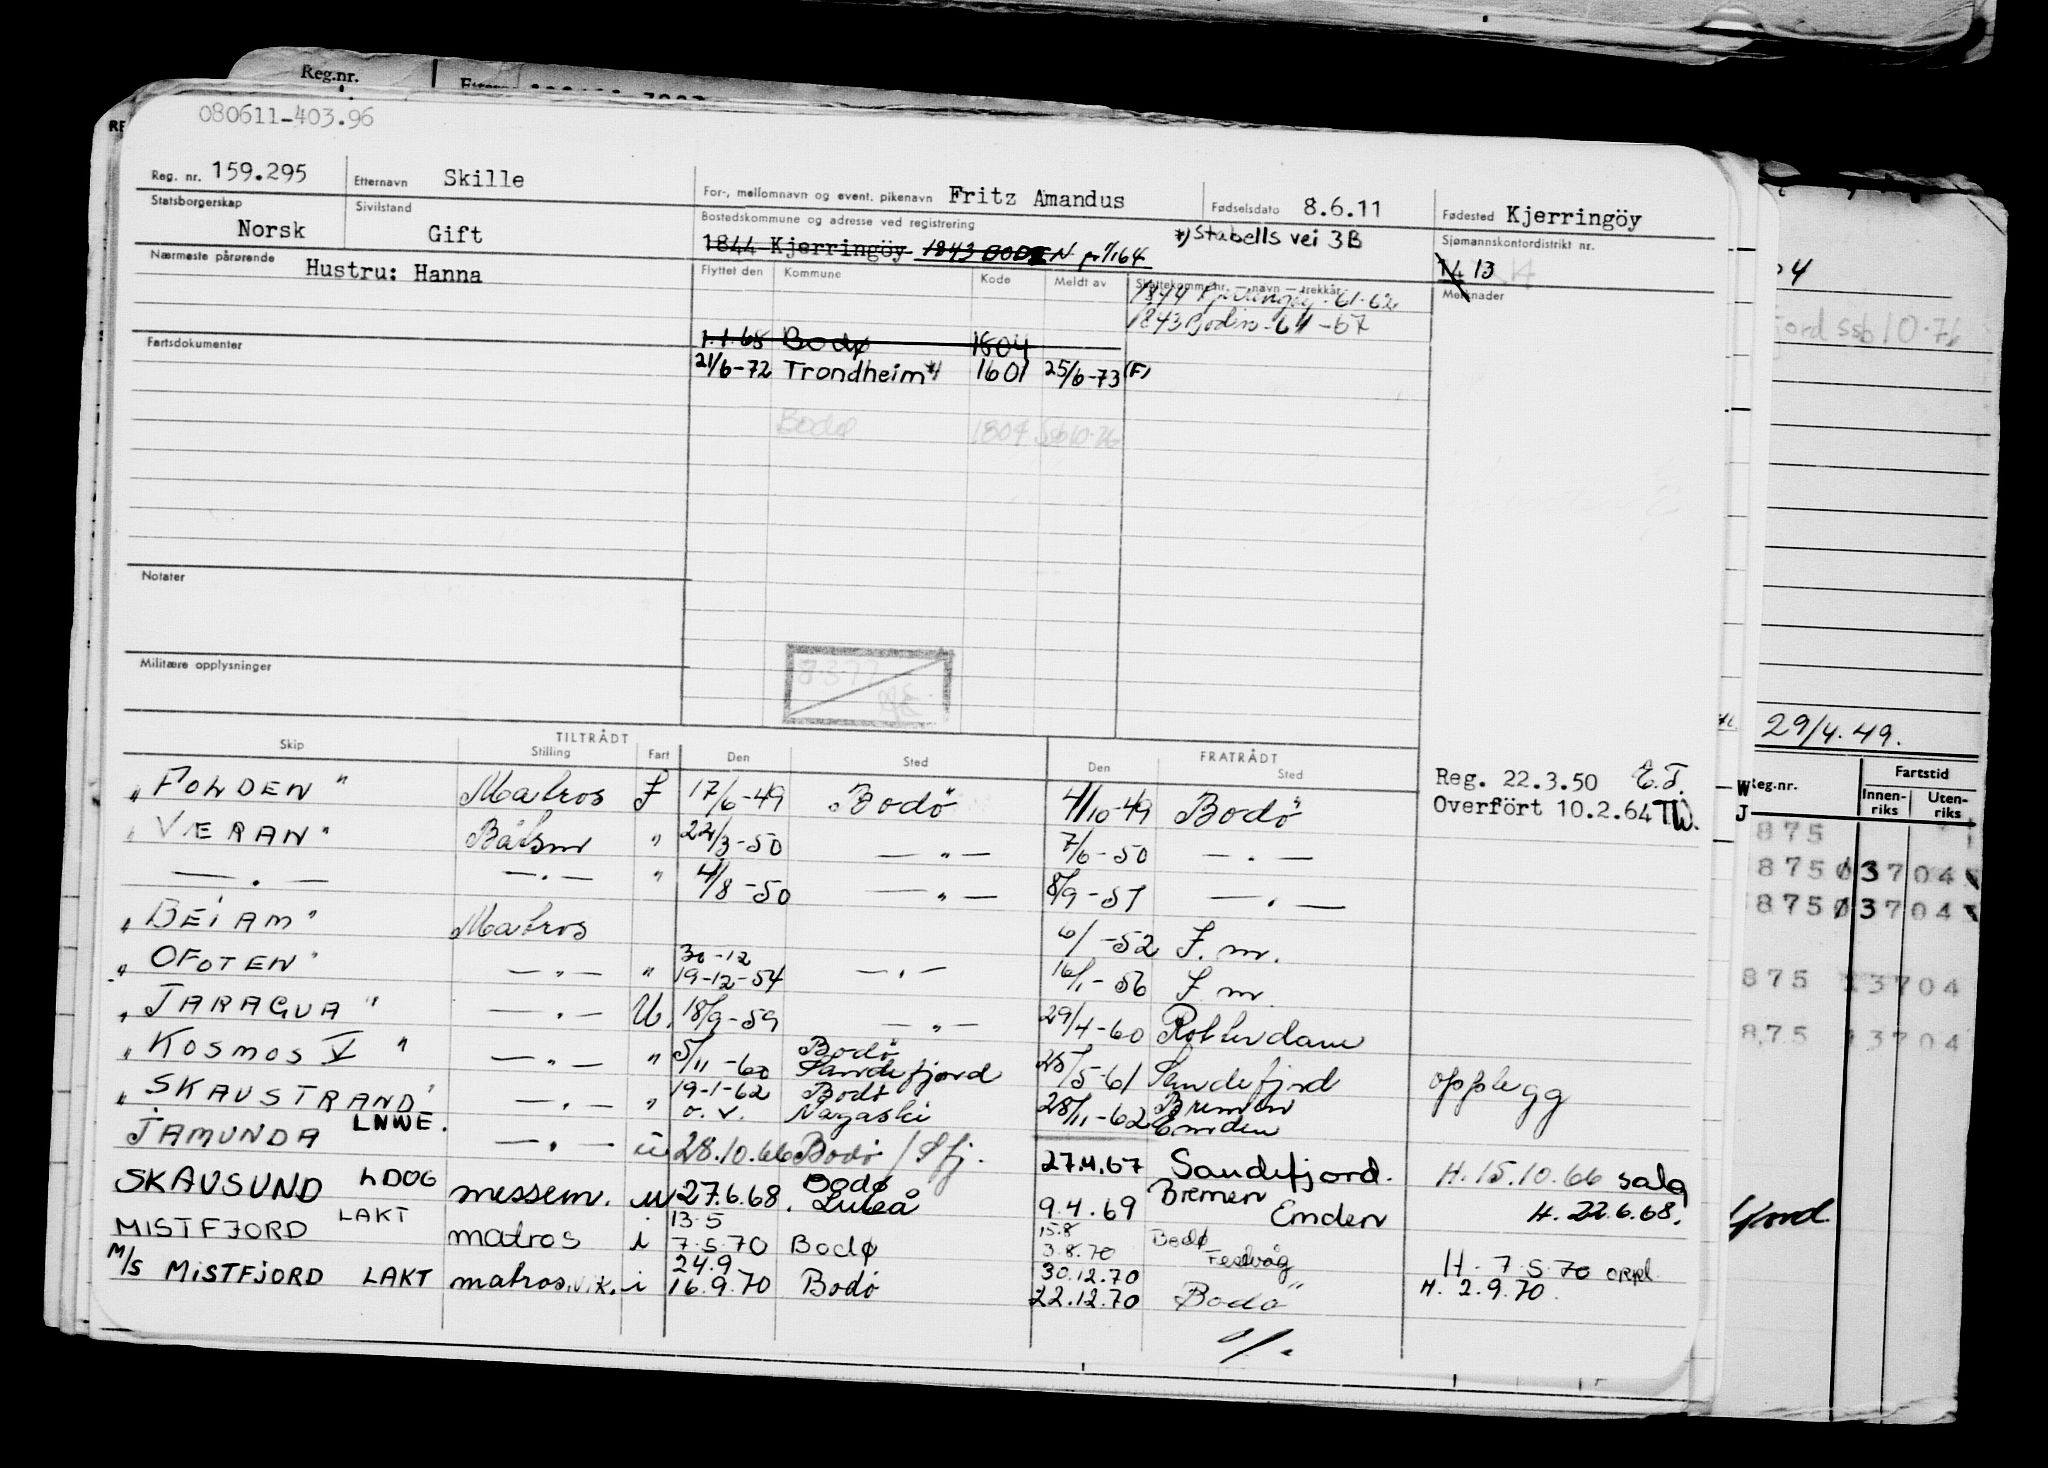 Reg.nr.
080611-403.96
Reg. nr. 159.295 Etternavn Skille For-, mellomnavn og event. pikenavn Fritz Amandus Fødselsdato 8.6.11 Fødested Kjerringöy
Statsborgerskap Norsk Sivilstand Gift Bostedskommune og adresse ved registrering *) Stabells vei 3B Sjømannskontordistrikt nr.
1844 Kjerringöy 1843 BODIN pr 1/1 64 14 13
Nærmeste pårørende Hustru: Hanna Flyttet den Kommune Kode Meldt av Skattekomm.nr. — navn — trekkår Merknader
1844 Kjerringöy - 61-62
1843 Bodin - 64 - 67
Fartsdokumenter 1.1.68 Bodø 1804
21/6-72 Trondheim *) 1601 25/6-73 (F)
Bodø 1804 Ssb 10.76
Notater
Militære opplysninger
8.3.77
TILTRÅDT FRATRÅDT
Skip Stilling Fart Den Sted Den Sted
"FOLDEN" Matros J 17/6-49 Bodö 4/10-49 Bodö Reg. 22.3.50 E.T.
Overfört 10.2.64 TW.
"VÆRAN" Båtsm " 22/3-50 — " — 7/6-50 — " —
— " — — " — " 4/8-50 — " — 8/9-51 — " —
"BEIAM" Matros 6/ -52 J. m.
"OFOTEN" — " — " 30-12
19-12-54 — " — 16/1-56 J. m.
"JARAGUA" — " — U. 18/9-59 — " — 29/4-60 Rotterdam
"KOSMOS V" — " — " 5/11-60 Bodö Sandefjord 25/5-61 Sandefjord opplegg
"SKAUSTRAND" — " — " 19-1-62 Bodö
o. v. Nagaski 28/11-62 Bremen Emden
JAMUNDA LNWE. — " — u 28.10.66 Bodö / Sfj. 27.4.67 Sandefjord. H. 15.10.66 salg
SKAUSUND LDOG messem. u 27.6.68. Bodø Luleå 9.4.69 Bremen Emden H. 22.6.68.
MISTFJORD LAKT matros i 13.5
7.5.70 Bodø 15.8
3.8.70 Bodø Festvåg H. 7.5.70 oppl.
M/S MISTFJORD LAKT matros v.k. i 24.9
16.9.70 Bodö 30.12.70
22.12.70 Bodö H. 2.9.70.
fjord Ssb 10.76
29/4.49.
Reg.nr. Fartstid
Innen-riks Uten-riks
875
875 03704
875 03704
875 13704
875 13704
fjord